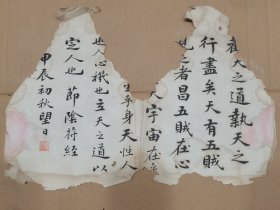 觀天之道執天之
行盡矣天有五賊
見之者昌五賊在心
宇宙在
生乎身天性人
也人心機也立天之道以
定人也 節陰符經
甲辰初秋望日